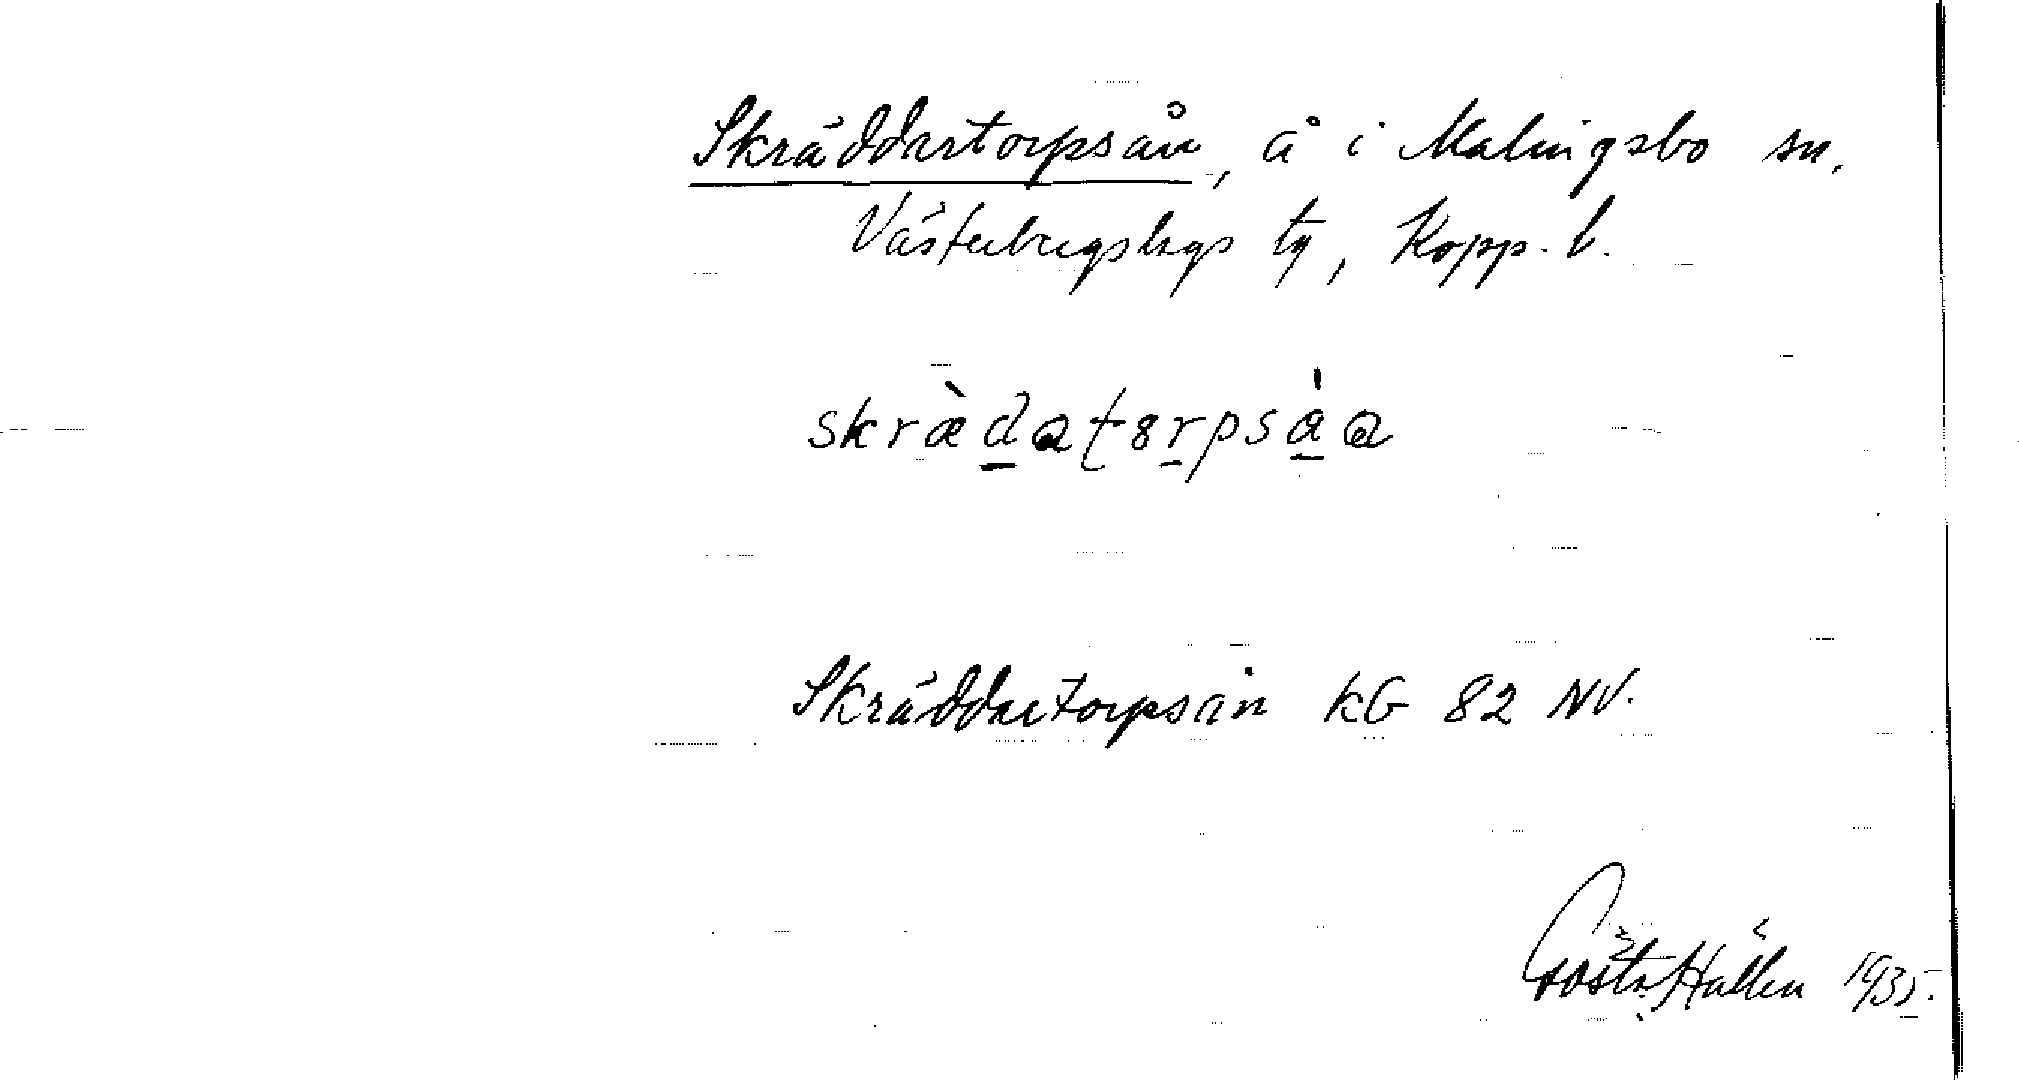 Skräddartorpsån, å i Malingsbo sn,
Västerbergslags tg, Kopp. l.
skræ̀datorpsàa
Skräddartorpsån kG 82 NV.
Gösta Hallén 1935.